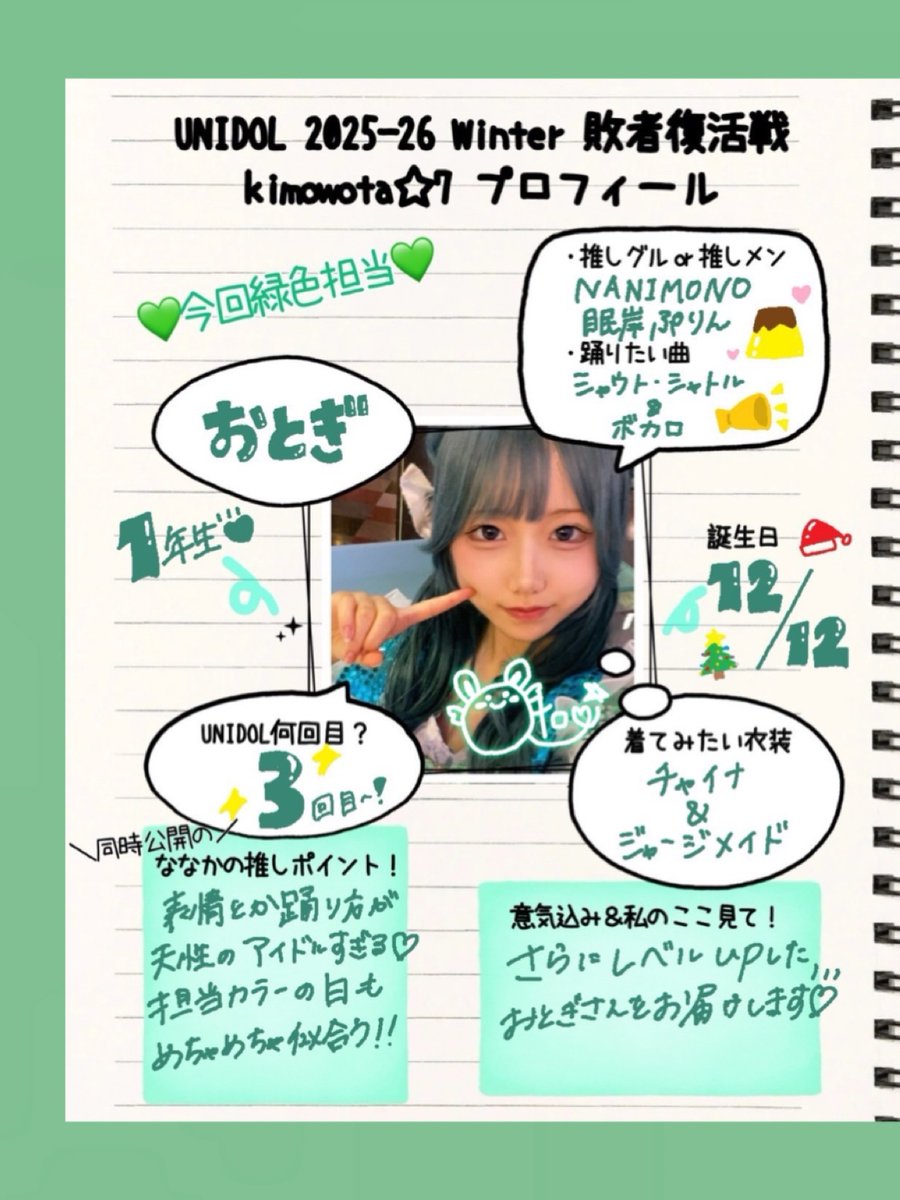 UNIDOL 2025-26 Winter 敗者復活戦
kimowota☆7 プロフィール
💚今回緑色担当💚
・推しグル or 推しメン
NANIMONO
眠岸ぷりん
・踊りたい曲
シャウト・シャトル
&
ボカロ
おとぎ
1年生
誕生日
12/12
UNIDOL何回目?
3回目~!
着てみたい衣装
チャイナ
&
ジャージメイド
\同時公開の/
ななかの推しポイント!
表情とか踊り方が
天性のアイドルすぎる♡
担当カラーの日も
めちゃめちゃ似合う!!
意気込み&私のここ見て!
さらにレベルUPした,,,
おとぎさんをお届けします♡